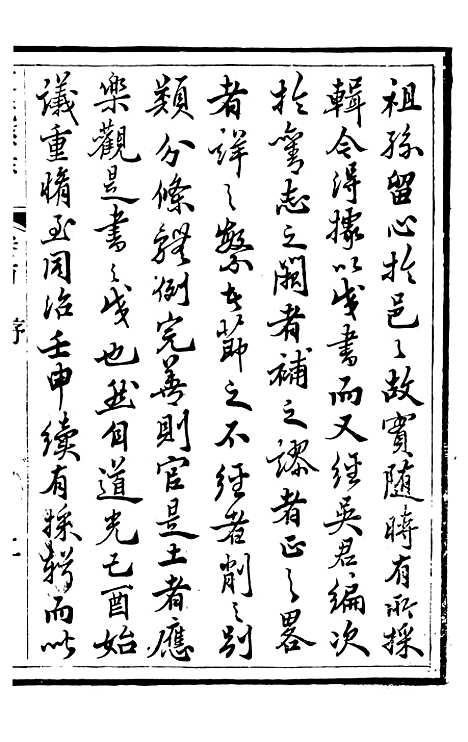 祖孫留心於邑之故實隨時有所採
輯今得據以成書而又經吳君編次
於舊志之闕者補之謬者正之畧
者詳之繁者節之不經者削之別
類分條體例完善則官是土者應
樂觀是書之成也然自道光己酉始
議重脩至同治壬申續有採輯而以
序